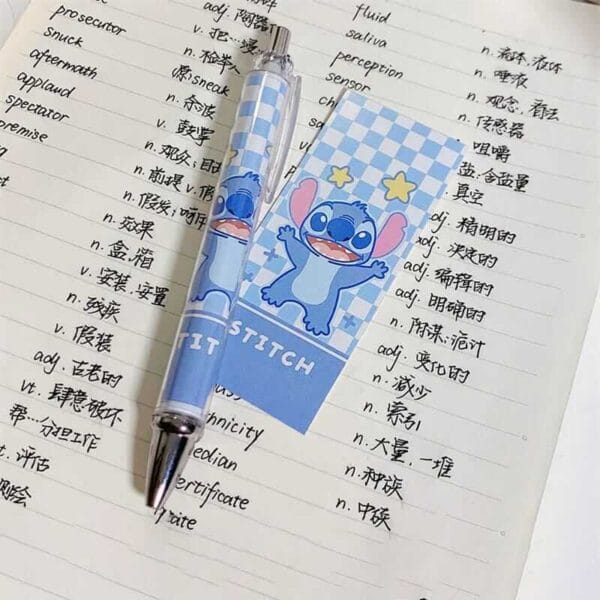 prosecutor
snuck
aftermath
applaud
spectator
premise
adj. 陶器
v. 把…
n. 检举人
源:sneak
n. 余波
v. 鼓掌
n. 观众;目
n. 前提 v. 假
n. 假发;
n. 效果
n. 盒,箱
v. 安装,安置
n. 残疾
v. 假装
adj. 古老的
vt. 肆意破坏
帮…分担工作
t. 评估
fluid
saliva
perception
sensor
ch
sa
n. 流体,液体
n. 唾液
n. 观念,看法
n. 传感器
咀嚼
盐;含盐量
真空
adj. 精明的
adj. 决定的
adj. 编辑的
adj. 明确的
n. 阴谋;诡计
adj. 变化的
n. 减少
n. 索引
n. 大量,一堆
n. 种族
n. 中族
hnicity
edian
ertificate
STITCH
TIT